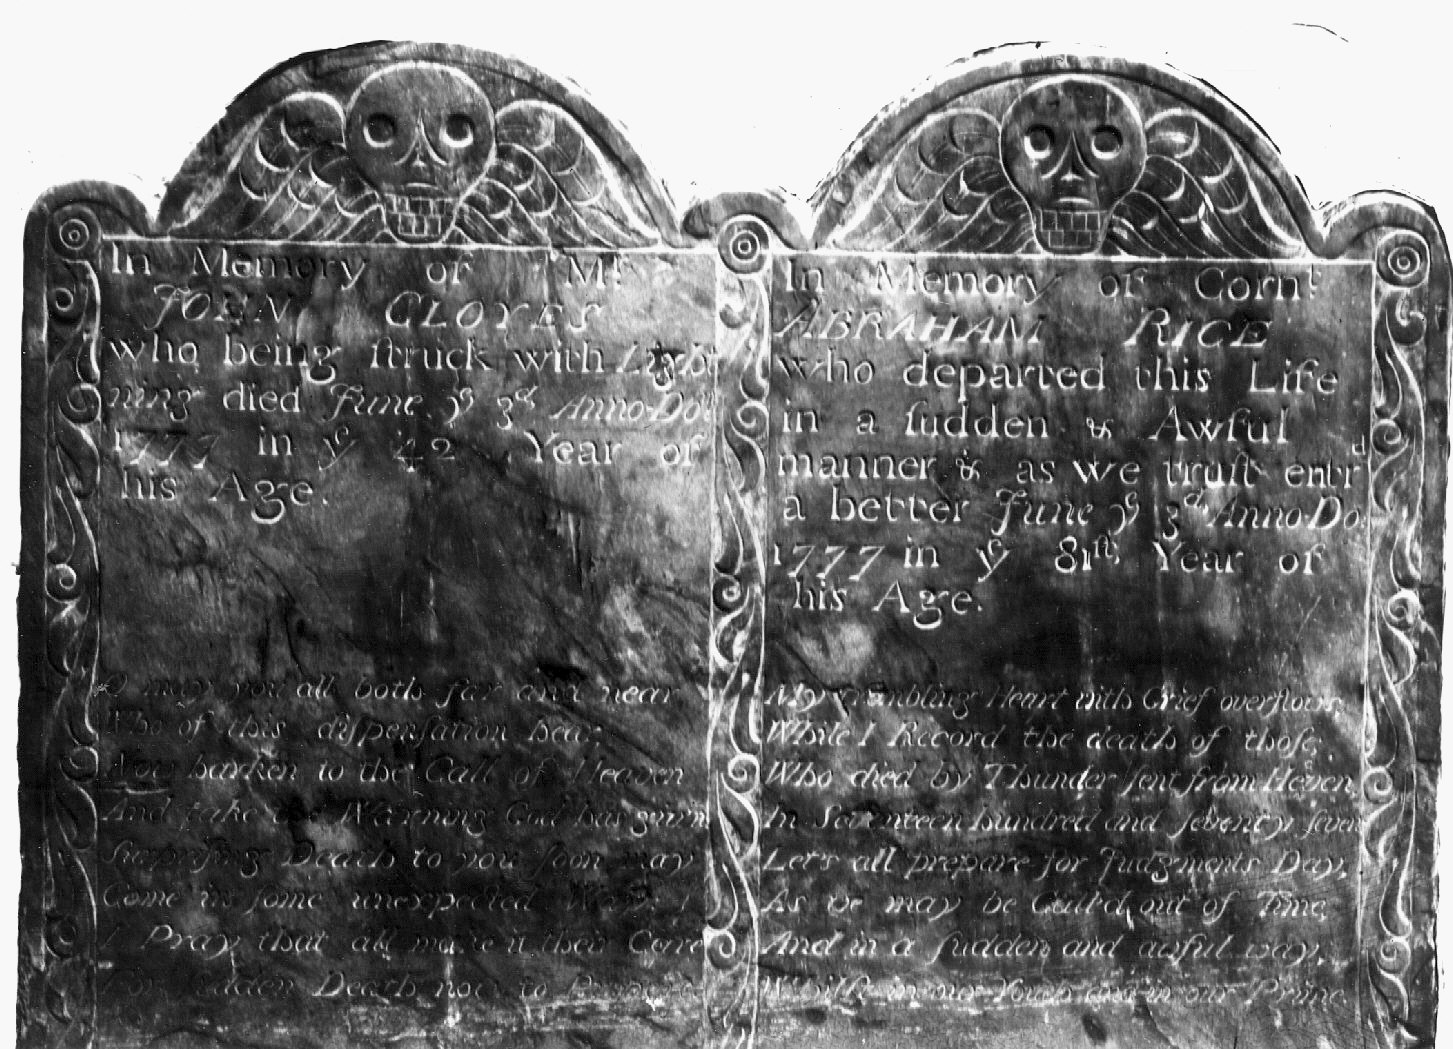 In Memory of Mr.
JOHN CLOYES
who being ſtruck with Ligh
ning died June ye 3d Anno Do.
1777 in ye 42 Year of
his Age.
O may you all both far and near
Who of this diſpenſation hear
Now harken to the Call of Heaven
And take the Warning God has given
Surpriſing Death to you ſoon may
Come in ſome unexpected Way
I Pray that all make it their Care
For ſudden Death now to Prepare
In Memory of Cornt.
ABRAHAM RICE
who departed this Life
in a ſudden & Awful
manner & as we truſt entrd
a better June ye 3d Anno Do.
1777 in ye 81ſt, Year of
his Age.
My trembling Heart with Grief overflows,
While I Record the death of thoſe,
Who died by Thunder ſent from Heaven,
In Seventeen hundred and ſeventy ſeven
Let's all prepare for Judgments Day,
As we may be Call'd out of Time,
And in a ſudden and awful way,
Whilſt in our Youth and in our Prime